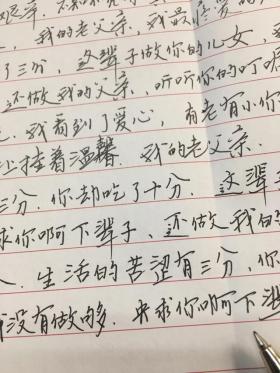 我的老父亲，我最疼爱的
了三分，这辈子做你的儿女，我
还做我的父亲，听听你的叮咛
我看到了爱心，有老有小你
上挂着温馨．我的老父亲．
三分．你却吃了十分．这辈子
求你啊下辈子，还做我的
人．生活的苦涩有三分，你
我没有做够．央求你啊下辈